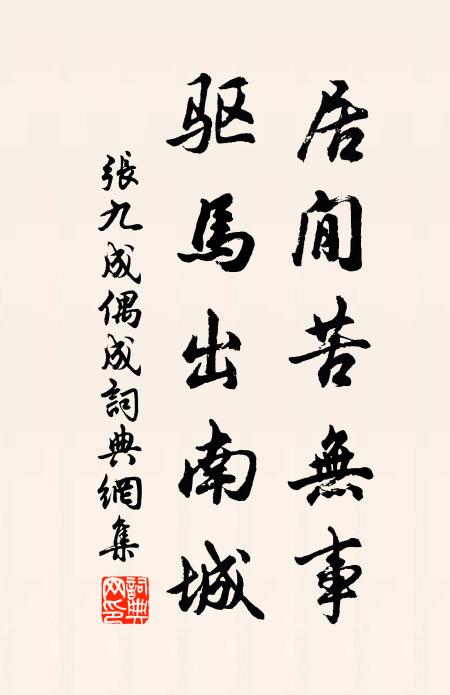 居閒苦無事
驱馬出南城
張九成偶成詞典網集
詞典網印